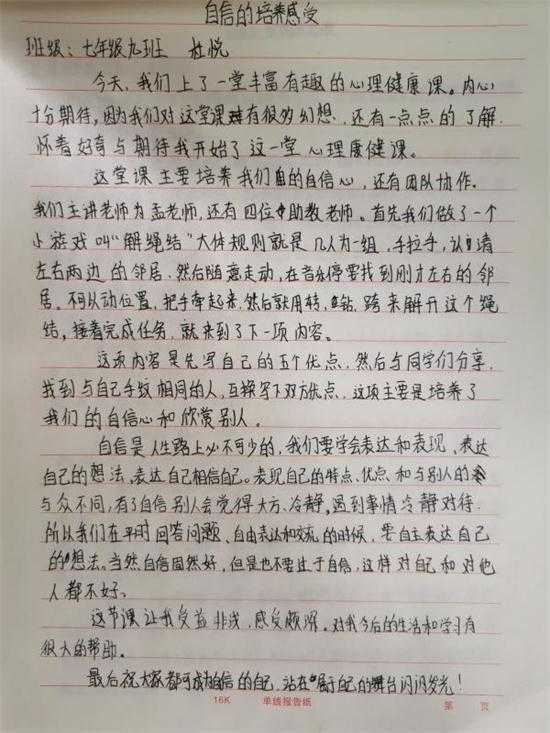 自信的培养感受
班级：七年级九班 杜悦
今天，我们上了一堂丰富有趣的心理健康课。内心
十分期待，因为我们对这堂课有很多幻想，还有一点点的了解.
怀着好奇与期待我开始了这一堂心理康健课。
这堂课主要培养我们的自信心，还有团队协作.
我们主讲老师为孟老师，还有四位助教老师。首先我们做了一个
小游戏叫“解绳结”大体规则就是几人为一组，手拉手，认清
左右两边的邻居、然后随意走动，在音乐停要找到刚才左右的邻
居。不可以动位置，把手牵起来，然后就用转、钻、跨来解开这个绳
结。接着完成任务，就来到了下一项内容。
这项内容是先写自己的五个优点，然后与同学们分享，
找到与自己手纹相同的人，互换写下双方优点，这项主要是培养了
我们的自信心和欣赏别人。
自信是人生路上必不可少的，我们要学会表达和表现、表达
自己的想法、表达自己相信自己。表现自己的特点、优点、和与别人的
与众不同，有了自信别人会觉得大方、冷静。遇到事情冷静对待.
所以我们在平时回答问题、自由表达和交流的时候，要自主表达自己
的想法。当然自信固然好，但是也不要过于自信，这样对自己和对他
人都不好。
这节课让我受益非浅，感受颇深。对我今后的生活和学习有
很大的帮助。
最后祝大家都可成自信的自己，站在属于自己的舞台闪闪发光！
16K 单线报告纸 第 页